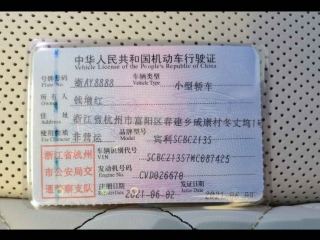 中华人民共和国机动车行驶证
Vehicle License of the People's Republic of China
号牌号码 浙AY8888 车辆类型 小型轿车
Plate No. Vehicle Type
所有人 钱增红
Owner
住址 浙江省杭州市富阳区春建乡咸康村冬丈坞1号
Address
使用性质 非营运 品牌型号 宾利SCBCZ135
Use Character Model
浙江省杭州 车辆识别代号 SCBCZ1357WC087425
VIN
市公安局交 发动机号码 CVD026670
Engine No.
通警察支队 注册日期 2021-06-02 发证日期 2021-06-02
Register Date Issue Date